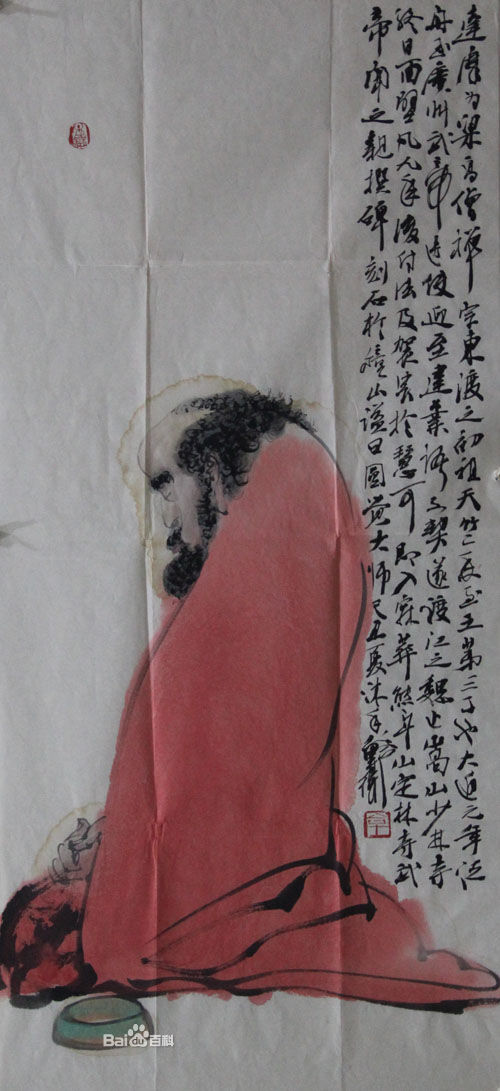 達摩为梁高僧禅宗東渡之初祖天竺二夜至王第三子也大通元年泛
舟至廣州武帝遣使迎至建業語不契遂渡江之魏止嵩山少林寺
終日面壁凡九年後付法及袈裟於慧可即入寂葬熊耳山定林寺武
帝聞之親撰碑刻石於山謚曰圓覺大師己丑夏沐手
Bai百科